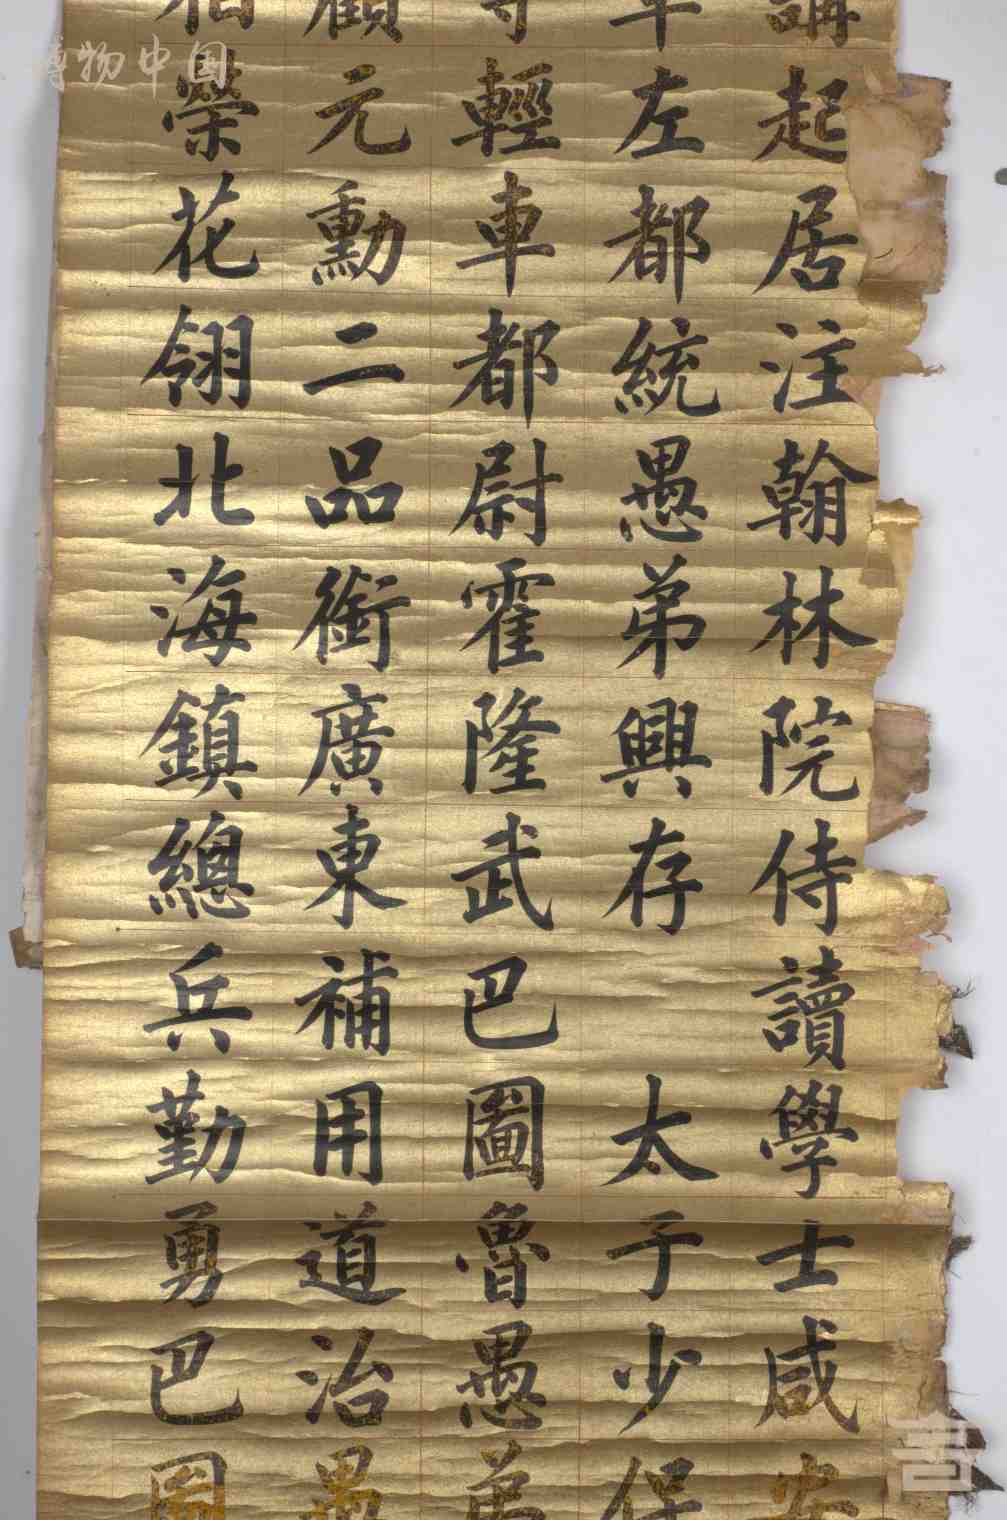 講起居注翰林院侍讀學士咸安
軍左都統愚弟興存 太子少保
等輕車都尉霍隆武巴圖魯愚弟
顧元勳二品銜廣東補用道治愚
榮花翎北海鎮總兵勤勇巴圖
博物中国